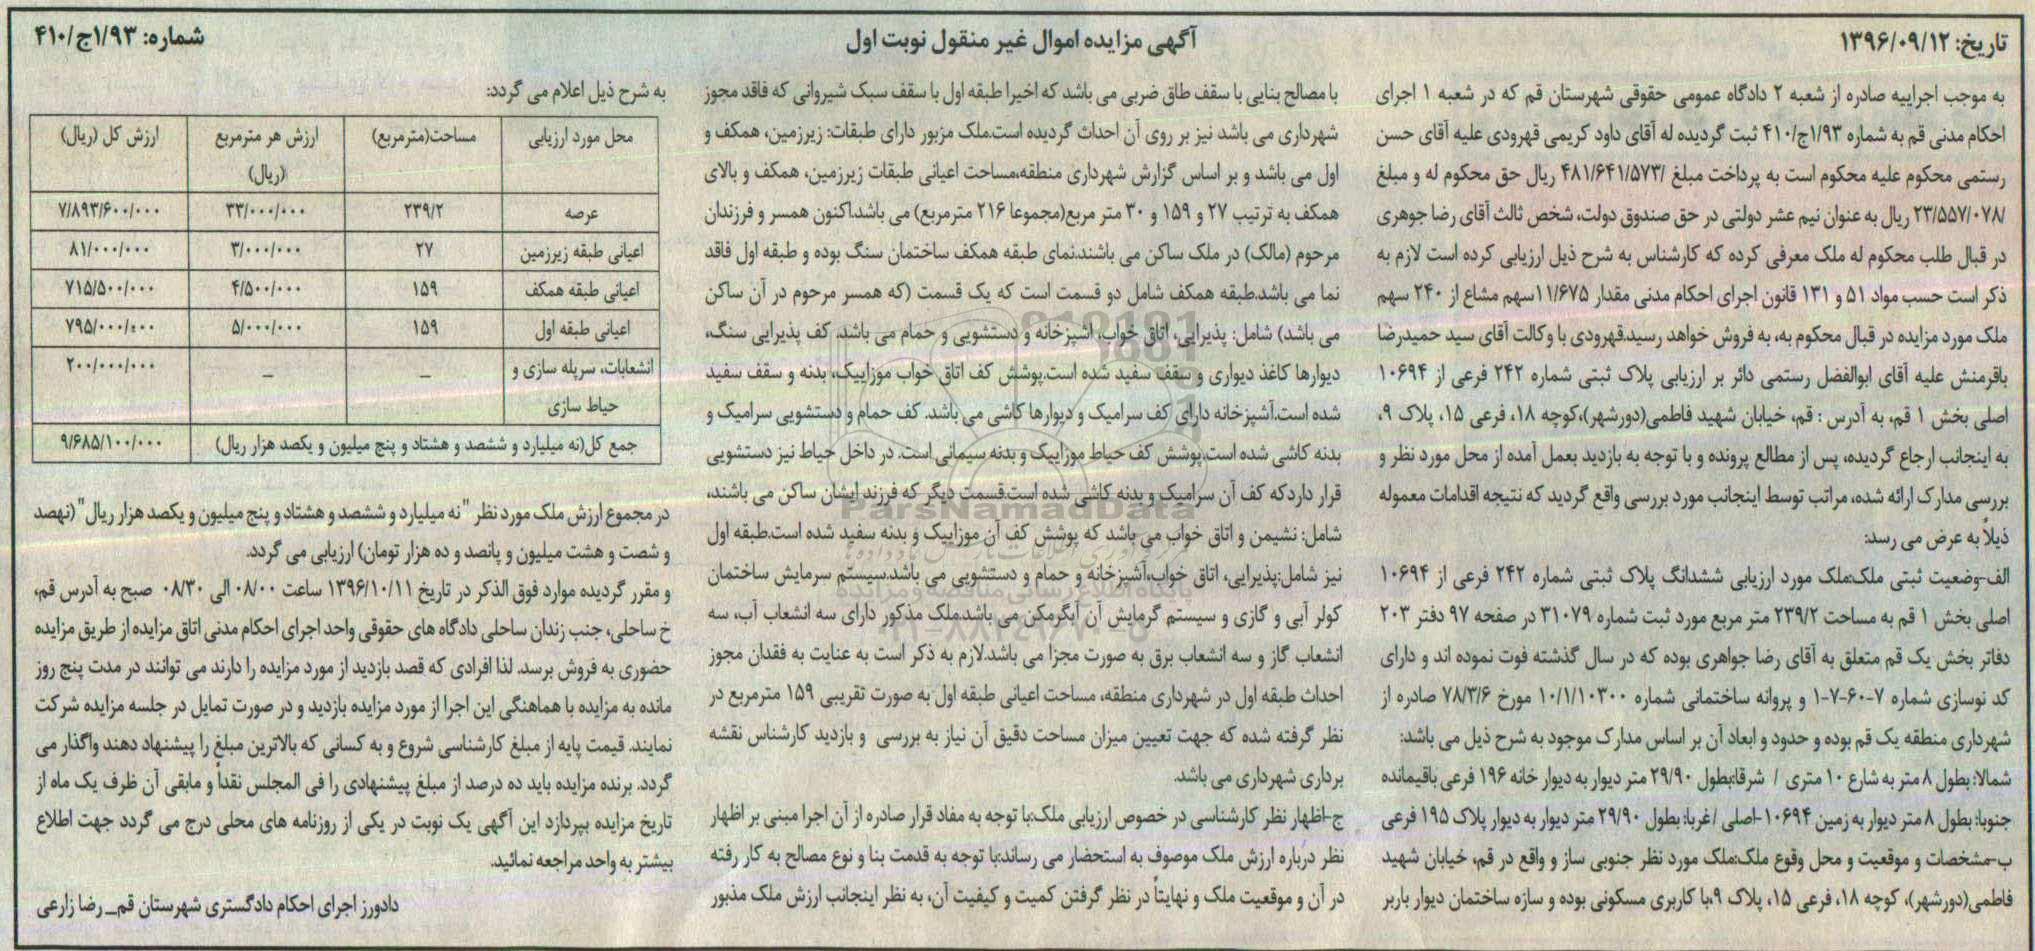 تاریخ: ۱۳۹۶/۰۹/۱۲
آگهی مزایده اموال غیر منقول نوبت اول
شماره: ۱/۹۳ج/۴۱۰
به موجب اجراییه صادره از شعبه ۲ دادگاه عمومی حقوقی شهرستان قم که در شعبه ۱ اجرای
احکام مدنی قم به شماره ۱/۹۳ج/۴۱۰ ثبت گردیده له آقای داود کریمی قهرودی علیه آقای حسن
رستمی محکوم علیه محکوم است به پرداخت مبلغ /۴۸۱/۶۴۱/۵۷۳ ریال حق محکوم له و مبلغ
/۲۳/۵۵۷/۰۷۸ ریال به عنوان نیم عشر دولتی در حق صندوق دولت، شخص ثالث آقای رضا جوهری
در قبال طلب محکوم له ملک معرفی کرده که کارشناس به شرح ذیل ارزیابی کرده است لازم به
ذکر است حسب مواد ۵۱ و ۱۳۱ قانون اجرای احکام مدنی مقدار ۱۱/۶۷۵سهم مشاع از ۲۴۰ سهم
ملک مورد مزایده در قبال محکوم به، به فروش خواهد رسید.قهرودی با وکالت آقای سید حمیدرضا
باقرمنش علیه آقای ابوالفضل رستمی دائر بر ارزیابی پلاک ثبتی شماره ۲۴۲ فرعی از ۱۰۶۹۴
اصلی بخش ۱ قم، به آدرس : قم، خیابان شهید فاطمی(دورشهر)،کوچه ۱۸، فرعی ۱۵، پلاک ۹،
به اینجانب ارجاع گردیده، پس از مطالع پرونده و با توجه به بازدید بعمل آمده از محل مورد نظر و
بررسی مدارک ارائه شده، مراتب توسط اینجانب مورد بررسی واقع گردید که نتیجه اقدامات معموله
ذیلاً به عرض می رسد:
الف-وضعیت ثبتی ملک:ملک مورد ارزیابی ششدانگ پلاک ثبتی شماره ۲۴۲ فرعی از ۱۰۶۹۴
اصلی بخش ۱ قم به مساحت ۲۳۹/۲ متر مربع مورد ثبت شماره ۳۱۰۷۹ در صفحه ۹۷ دفتر ۲۰۳
دفاتر بخش یک قم متعلق به آقای رضا جواهری بوده که در سال گذشته فوت نموده اند و دارای
کد نوسازی شماره ۷-۶۰-۷-۱ و پروانه ساختمانی شماره ۱۰/۱/۱۰۳۰۰ مورخ ۷۸/۳/۶ صادره از
شهرداری منطقه یک قم بوده و حدود و ابعاد آن بر اساس مدارک موجود به شرح ذیل می باشد:
شمالا: بطول ۸ متر به شارع ۱۰ متری / شرقا:بطول ۲۹/۹۰ متر دیوار به دیوار خانه ۱۹۶ فرعی باقیمانده
جنوبا: بطول ۸ متر دیوار به زمین ۱۰۶۹۴-اصلی / غربا: بطول ۲۹/۹۰ متر دیوار به دیوار پلاک ۱۹۵ فرعی
ب-مشخصات و موقعیت و محل وقوع ملک:ملک مورد نظر جنوبی ساز و واقع در قم، خیابان شهید
فاطمی(دورشهر)، کوچه ۱۸، فرعی ۱۵، پلاک ۹،با کاربری مسکونی بوده و سازه ساختمان دیوار باربر
با مصالح بنایی با سقف طاق ضربی می باشد که اخیرا طبقه اول با سقف سبک شیروانی که فاقد مجوز
شهرداری می باشد نیز بر روی آن احداث گردیده است.ملک مزبور دارای طبقات: زیرزمین، همکف و
اول می باشد و بر اساس گزارش شهرداری منطقه،مساحت اعیانی طبقات زیرزمین، همکف و بالای
همکف به ترتیب ۲۷ و ۱۵۹ و ۳۰ متر مربع(مجموعا ۲۱۶ مترمربع) می باشد.اکنون همسر و فرزندان
مرحوم (مالک) در ملک ساکن می باشند.نمای طبقه همکف ساختمان سنگ بوده و طبقه اول فاقد
نما می باشد.طبقه همکف شامل دو قسمت است که یک قسمت (که همسر مرحوم در آن ساکن
می باشد) شامل: پذیرایی، اتاق خواب، اشپزخانه و دستشویی و حمام می باشد. کف پذیرایی سنگ،
دیوارها کاغذ دیواری و سقف سفید شده است.پوشش کف اتاق خواب موزاییک، بدنه و سقف سفید
شده است.آشپزخانه دارای کف سرامیک و دیوارها کاشی می باشد. کف حمام و دستشویی سرامیک و
بدنه کاشی شده است.پوشش کف حیاط موزاییک و بدنه سیمانی است. در داخل حیاط نیز دستشویی
قرار داردکه کف آن سرامیک و بدنه کاشی شده است.قسمت دیگر که فرزند ایشان ساکن می باشند،
شامل: نشیمن و اتاق خواب می باشد که پوشش کف آن موزاییک و بدنه سفید شده است.طبقه اول
نیز شامل:پذیرایی، اتاق خواب،آشپزخانه و حمام و دستشویی می باشد.سیستم سرمایش ساختمان
کولر آبی و گازی و سیستم گرمایش آن آبگرمکن می باشد.ملک مذکور دارای سه انشعاب آب، سه
انشعاب گاز و سه انشعاب برق به صورت مجزا می باشد.لازم به ذکر است به عنایت به فقدان مجوز
احداث طبقه اول در شهرداری منطقه، مساحت اعیانی طبقه اول به صورت تقریبی ۱۵۹ مترمربع در
نظر گرفته شده که جهت تعیین میزان مساحت دقیق آن نیاز به بررسی و بازدید کارشناس نقشه
برداری شهرداری می باشد.
ج-اظهار نظر کارشناسی در خصوص ارزیابی ملک:با توجه به مفاد قرار صادره از آن اجرا مبنی بر اظهار
نظر درباره ارزش ملک موصوف به استحضار می رساند:با توجه به قدمت بنا و نوع مصالح به کار رفته
در آن و موقعیت ملک و نهایتاً در نظر گرفتن کمیت و کیفیت آن، به نظر اینجانب ارزش ملک مذبور
به شرح ذیل اعلام می گردد:
محل مورد ارزیابی مساحت(مترمربع) ارزش هر مترمربع (ریال) ارزش کل (ریال)
عرصه ۲۳۹/۲ ۳۳/۰۰۰/۰۰۰ ۷/۸۹۳/۶۰۰/۰۰۰
اعیانی طبقه زیرزمین ۲۷ ۳/۰۰۰/۰۰۰ ۸۱/۰۰۰/۰۰۰
اعیانی طبقه همکف ۱۵۹ ۴/۵۰۰/۰۰۰ ۷۱۵/۵۰۰/۰۰۰
اعیانی طبقه اول ۱۵۹ ۵/۰۰۰/۰۰۰ ۷۹۵/۰۰۰/۰۰۰
انشعابات، سرپله سازی و حیاط سازی _ _ ۲۰۰/۰۰۰/۰۰۰
جمع کل(نه میلیارد و ششصد و هشتاد و پنج میلیون و یکصد هزار ریال) ۹/۶۸۵/۱۰۰/۰۰۰
در مجموع ارزش ملک مورد نظر "نه میلیارد و ششصد و هشتاد و پنج میلیون و یکصد هزار ریال" (نهصد
و شصت و هشت میلیون و پانصد و ده هزار تومان) ارزیابی می گردد.
و مقرر گردیده موارد فوق الذکر در تاریخ ۱۳۹۶/۱۰/۱۱ ساعت ۰۸/۰۰ الی ۰۸/۳۰ صبح به آدرس قم،
خ ساحلی، جنب زندان ساحلی دادگاه های حقوقی واحد اجرای احکام مدنی اتاق مزایده از طریق مزایده
حضوری به فروش برسد. لذا افرادی که قصد بازدید از مورد مزایده را دارند می توانند در مدت پنج روز
مانده به مزایده با هماهنگی این اجرا از مورد مزایده بازدید و در صورت تمایل در جلسه مزایده شرکت
نمایند. قیمت پایه از مبلغ کارشناسی شروع و به کسانی که بالاترین مبلغ را پیشنهاد دهند واگذار می
گردد. برنده مزایده باید ده درصد از مبلغ پیشنهادی را فی المجلس نقداً و مابقی آن ظرف یک ماه از
تاریخ مزایده بپردازد این آگهی یک نوبت در یکی از روزنامه های محلی درج می گردد جهت اطلاع
بیشتر به واحد مراجعه نمائید.
دادورز اجرای احکام دادگستری شهرستان قم_ رضا زارعی
ParsNamadData
پایگاه اطلاع رسانی مناقصه و مزایده